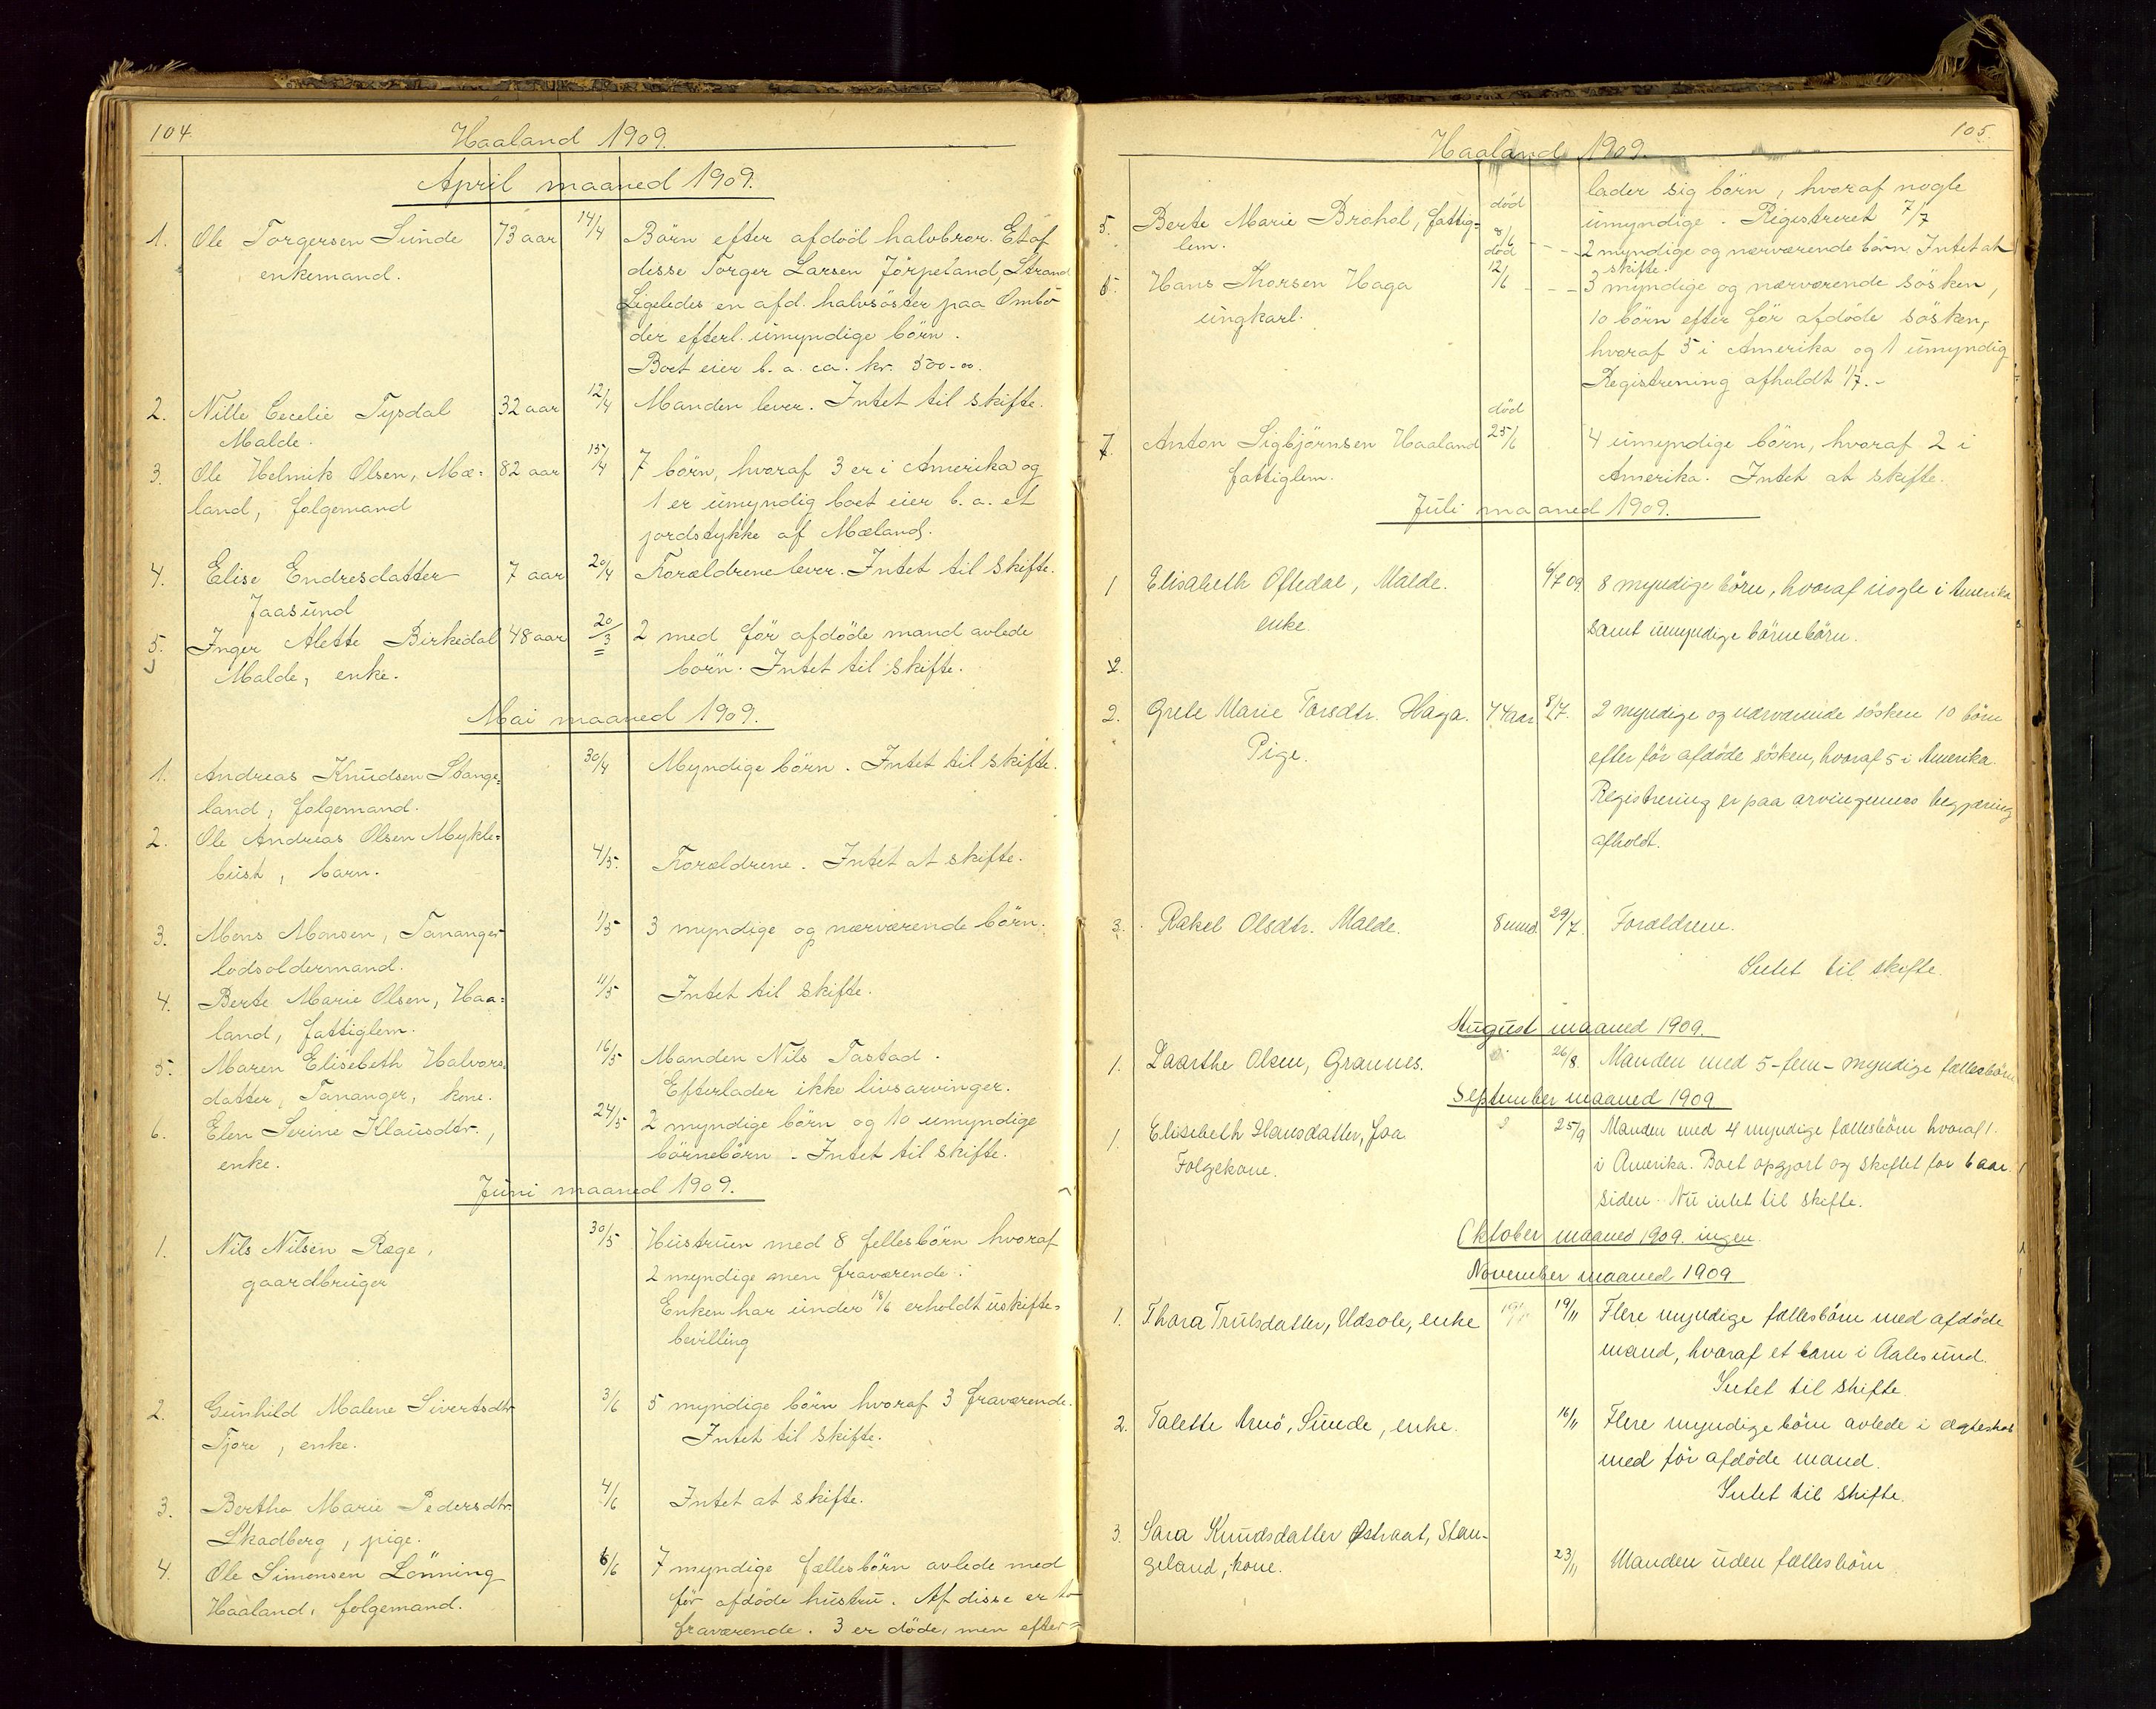 104.
Haaland 1909.
April maaned 1909.
1. Ole Torgersen Sunde 73 aar 14/4 Börn efter afdöd halvbror. Et af
enkemand. disse Torger Larsen Jörpeland, Strand
Ligeledes en afd. halvsöster paa Ombo
der efterl. umyndige börn.
Boet eier b. a. ca. kr. 500-00.
2. Nille Cecelie Tysdal 32 aar 12/4 Manden lever. Intet til skifte.
Malde.
3. Ole Helmik Olsen, Mæ= 82 aar 15/4 7 börn, hvoraf 3 er i Amerika og
land, folgemand 1 er umyndig boet eier b. a. et
jordstykke af Mæland.
4. Elise Endresdatter 7 aar 20/4 Forældrene lever. Intet til skifte.
Jaasund
5. Inger Alette Birkedal 48 aar 20/3 2 med för afdöde mand avlede
Malde, enke. börn. Intet til skifte.
Mai maaned 1909.
1. Andreas Knudsen Stange= 30/4 Myndige börn. Intet til skifte.
land, folgemand.
2. Ole Andreas Olsen Mykle=
bust, barn. 4/5. Forældrene. Intet at skifte.
3. Mons Monsen, Tananger 1/5 3 myndige og nærværende börn.
lodsoldermand.
4. Berte Marie Olsen, Haa= 11/5 Intet til skifte.
land, fattiglem.
5. Maren Elisebeth Halvors 16/5 Manden Nils Tastad.
datter, Tananger, kone. Efterlader ikke livsarvinger.
6. Elen Serine Klausdtr., 24/5 2 myndige börn og 10 umyndige
enke. börnebörn. Intet til skifte.
Juni maaned 1909.
1. Nils Nilsen Ræge, 30/5 Hustruen med 8 fellesbörn hvoraf
gaardbruger 2 myndige men fraværende.
Enken har under 18/6 erholdt uskifte=
bevilling
2. Gunhild Malene Sivertsdtr 3/6 5 myndige börn hvoraf 3 fraværende.
Tjore, enke. Intet til skifte.
3. Bertha Marie Pedersdtr. 4/6 Intet at skifte.
Skadberg, pige.
4. Ole Simonsen Lönning 6/6 7 myndige fællesbörn avlede med
Haaland, folgemand. för afdöde hustru. Af disse er to
fraværende. 3 er döde, men efter=
105.
Haaland 1909.
lader sig börn, hvoraf nogle
umyndige. Registreret 7/7
5. Berte Marie Brohol, fattig= död 8/6 - - - 2 myndige og nærværende börn. Intet at
lem. skifte.
6. Hans Thorsen Haga död 12/6 - - - 3 myndige og nærværende sösken,
ungkarl. 10 börn efter för afdöde sösken,
hvoraf 5 i Amerika og 1 umyndig
Registrering afholdt 1/7. -
7. Anton Sigbjörnsen Haaland död 25/6 4 umyndige börn, hvoraf 2 i
fattiglem. Amerika. Intet at skifte.
Juli maaned 1909.
1 Elisabeth Oftedal, Malde. 6/7 09. 8 myndige börn, hvoraf nogle i Amerika
enke. samt umyndige börnebörn.
2.
2. Grete Marie Torsdtr. Haga. 74 aar 8/7. 2 myndige og nærværende sösken 10 börn
Pige. efter för afdöde sösken, hvoraf 5 i Amerika.
Registrering er paa arvingernes begjæring
afholdt.
3. Rakel Olsdtr. Malde. 8 mnd. 29/7. Forældrene.
Intet til skifte.
August maaned 1909.
1. Laarthe Olsen, Grannes. 26/8. Manden med 5-fem- myndige fællesbörn
September maaned 1909
1. Elisebeth Hansdatter, Joa 25/9 Manden med 4 myndige fællesbörn hvoraf 1.
Folgekone. i Amerika. Boet opgjort og skiftet for 6 aar
siden. Nu intet til skifte.
Oktober maaned 1909. ingen.
November maaned 1909
1. Thora Trulsdatter, Udsole, enke 19/11 19/11 Flere myndige fællesbörn med afdöde
mand, hvoraf et barn i Aalesund.
Intet til skifte.
2. Talette Arnö, Sunde, enke. 16/11 Flere myndige börn avlede i ægteskab
med för afdöde mand.
Intet til skifte.
3. Sara Knudsdatter Østraat, Stan-
geland, kone. 23/11 Manden uden fællesbörn